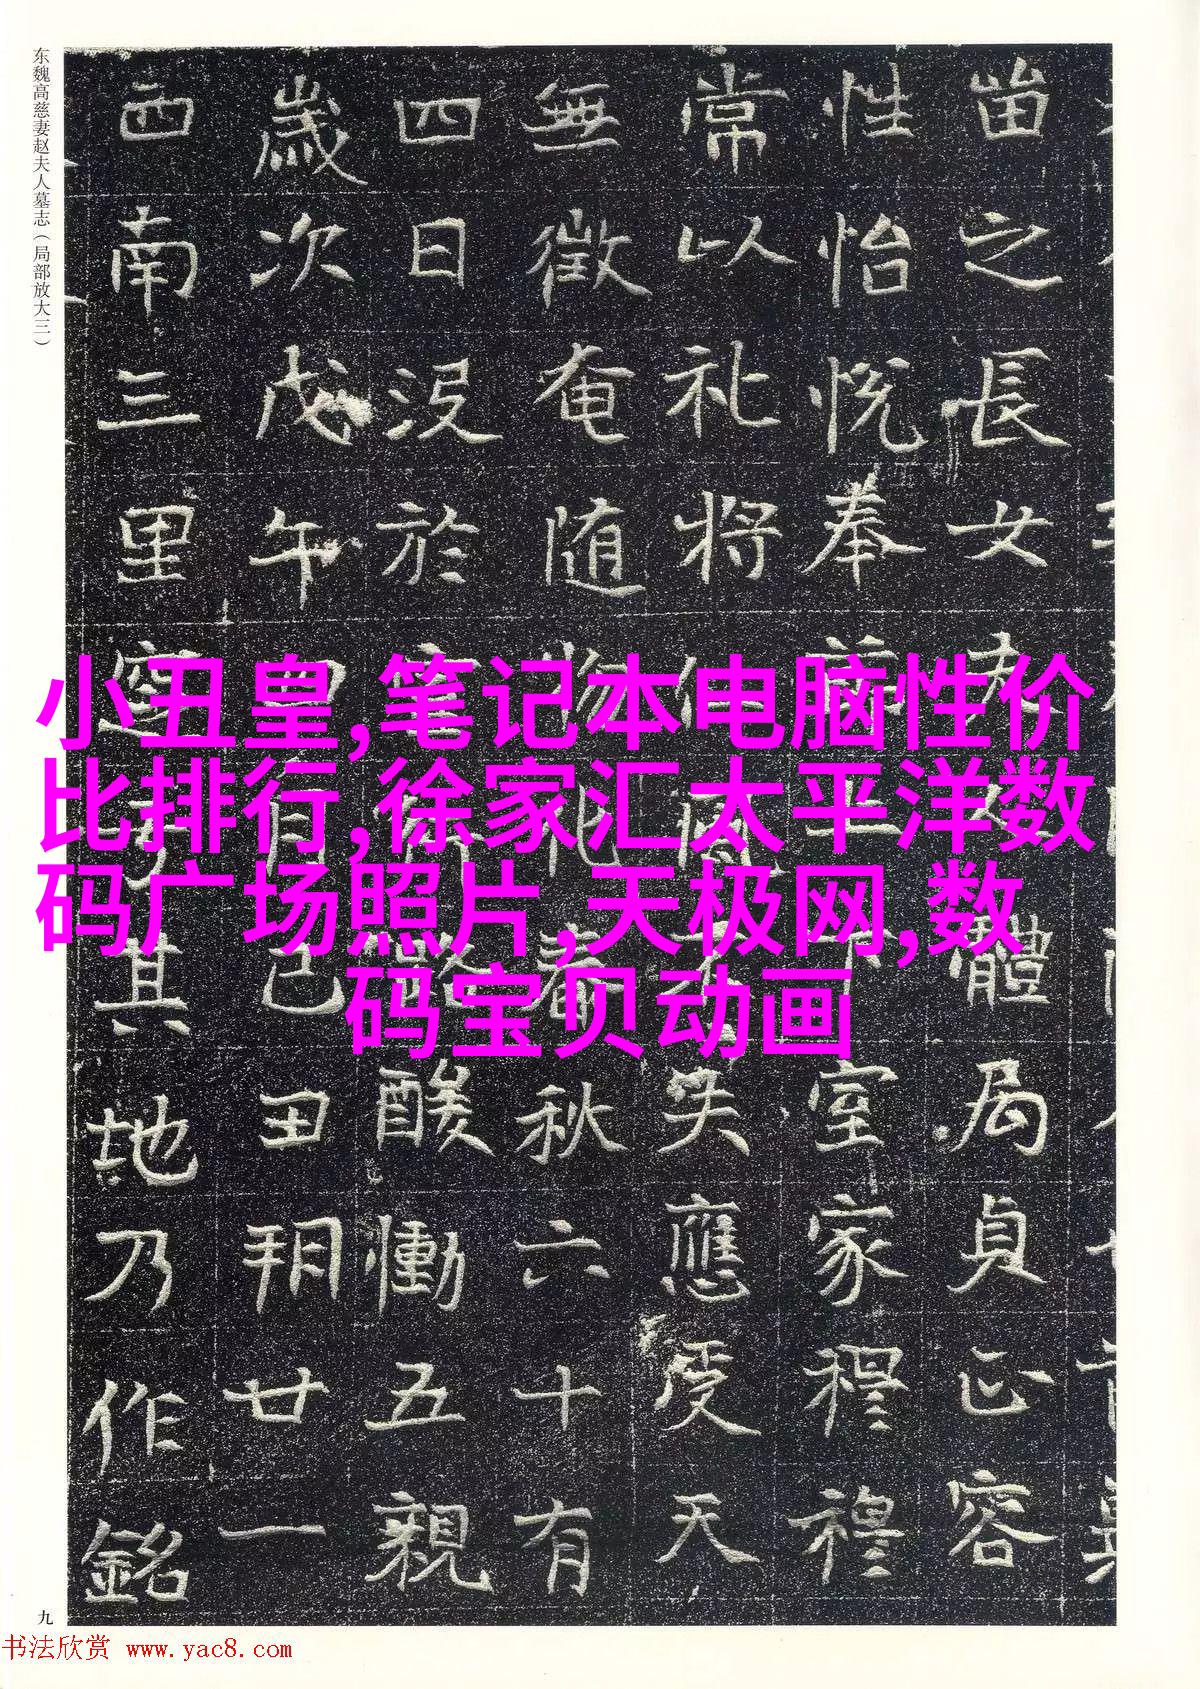 东魏高慈妻赵夫人墓志（局部放大三）
之長女夫人體局貞正容
性怡悦奉下室家穆穆
常以礼将何不失應受天
無徵奄随物化春秋六十有
四日没於行路酸慟五親
歲次戊午四月己丑朔廿一
西南三里窆于其地乃作銘
小丑皇,笔记本电脑性价
比排行,徐家汇太平洋数
码广场照片,天极网,数
码宝贝动画
九
书法欣赏 www.yac8.com